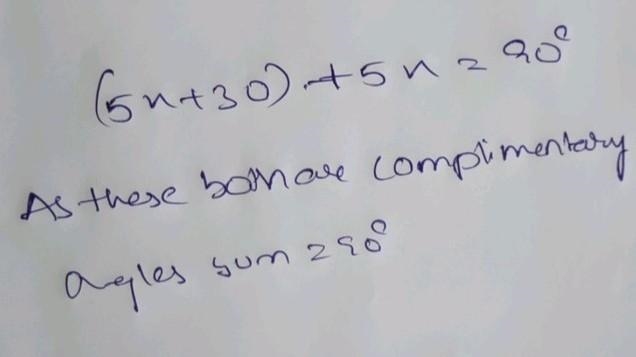 (5x+30)+5x=90°
As these both are complimentary
angles sum = 90°